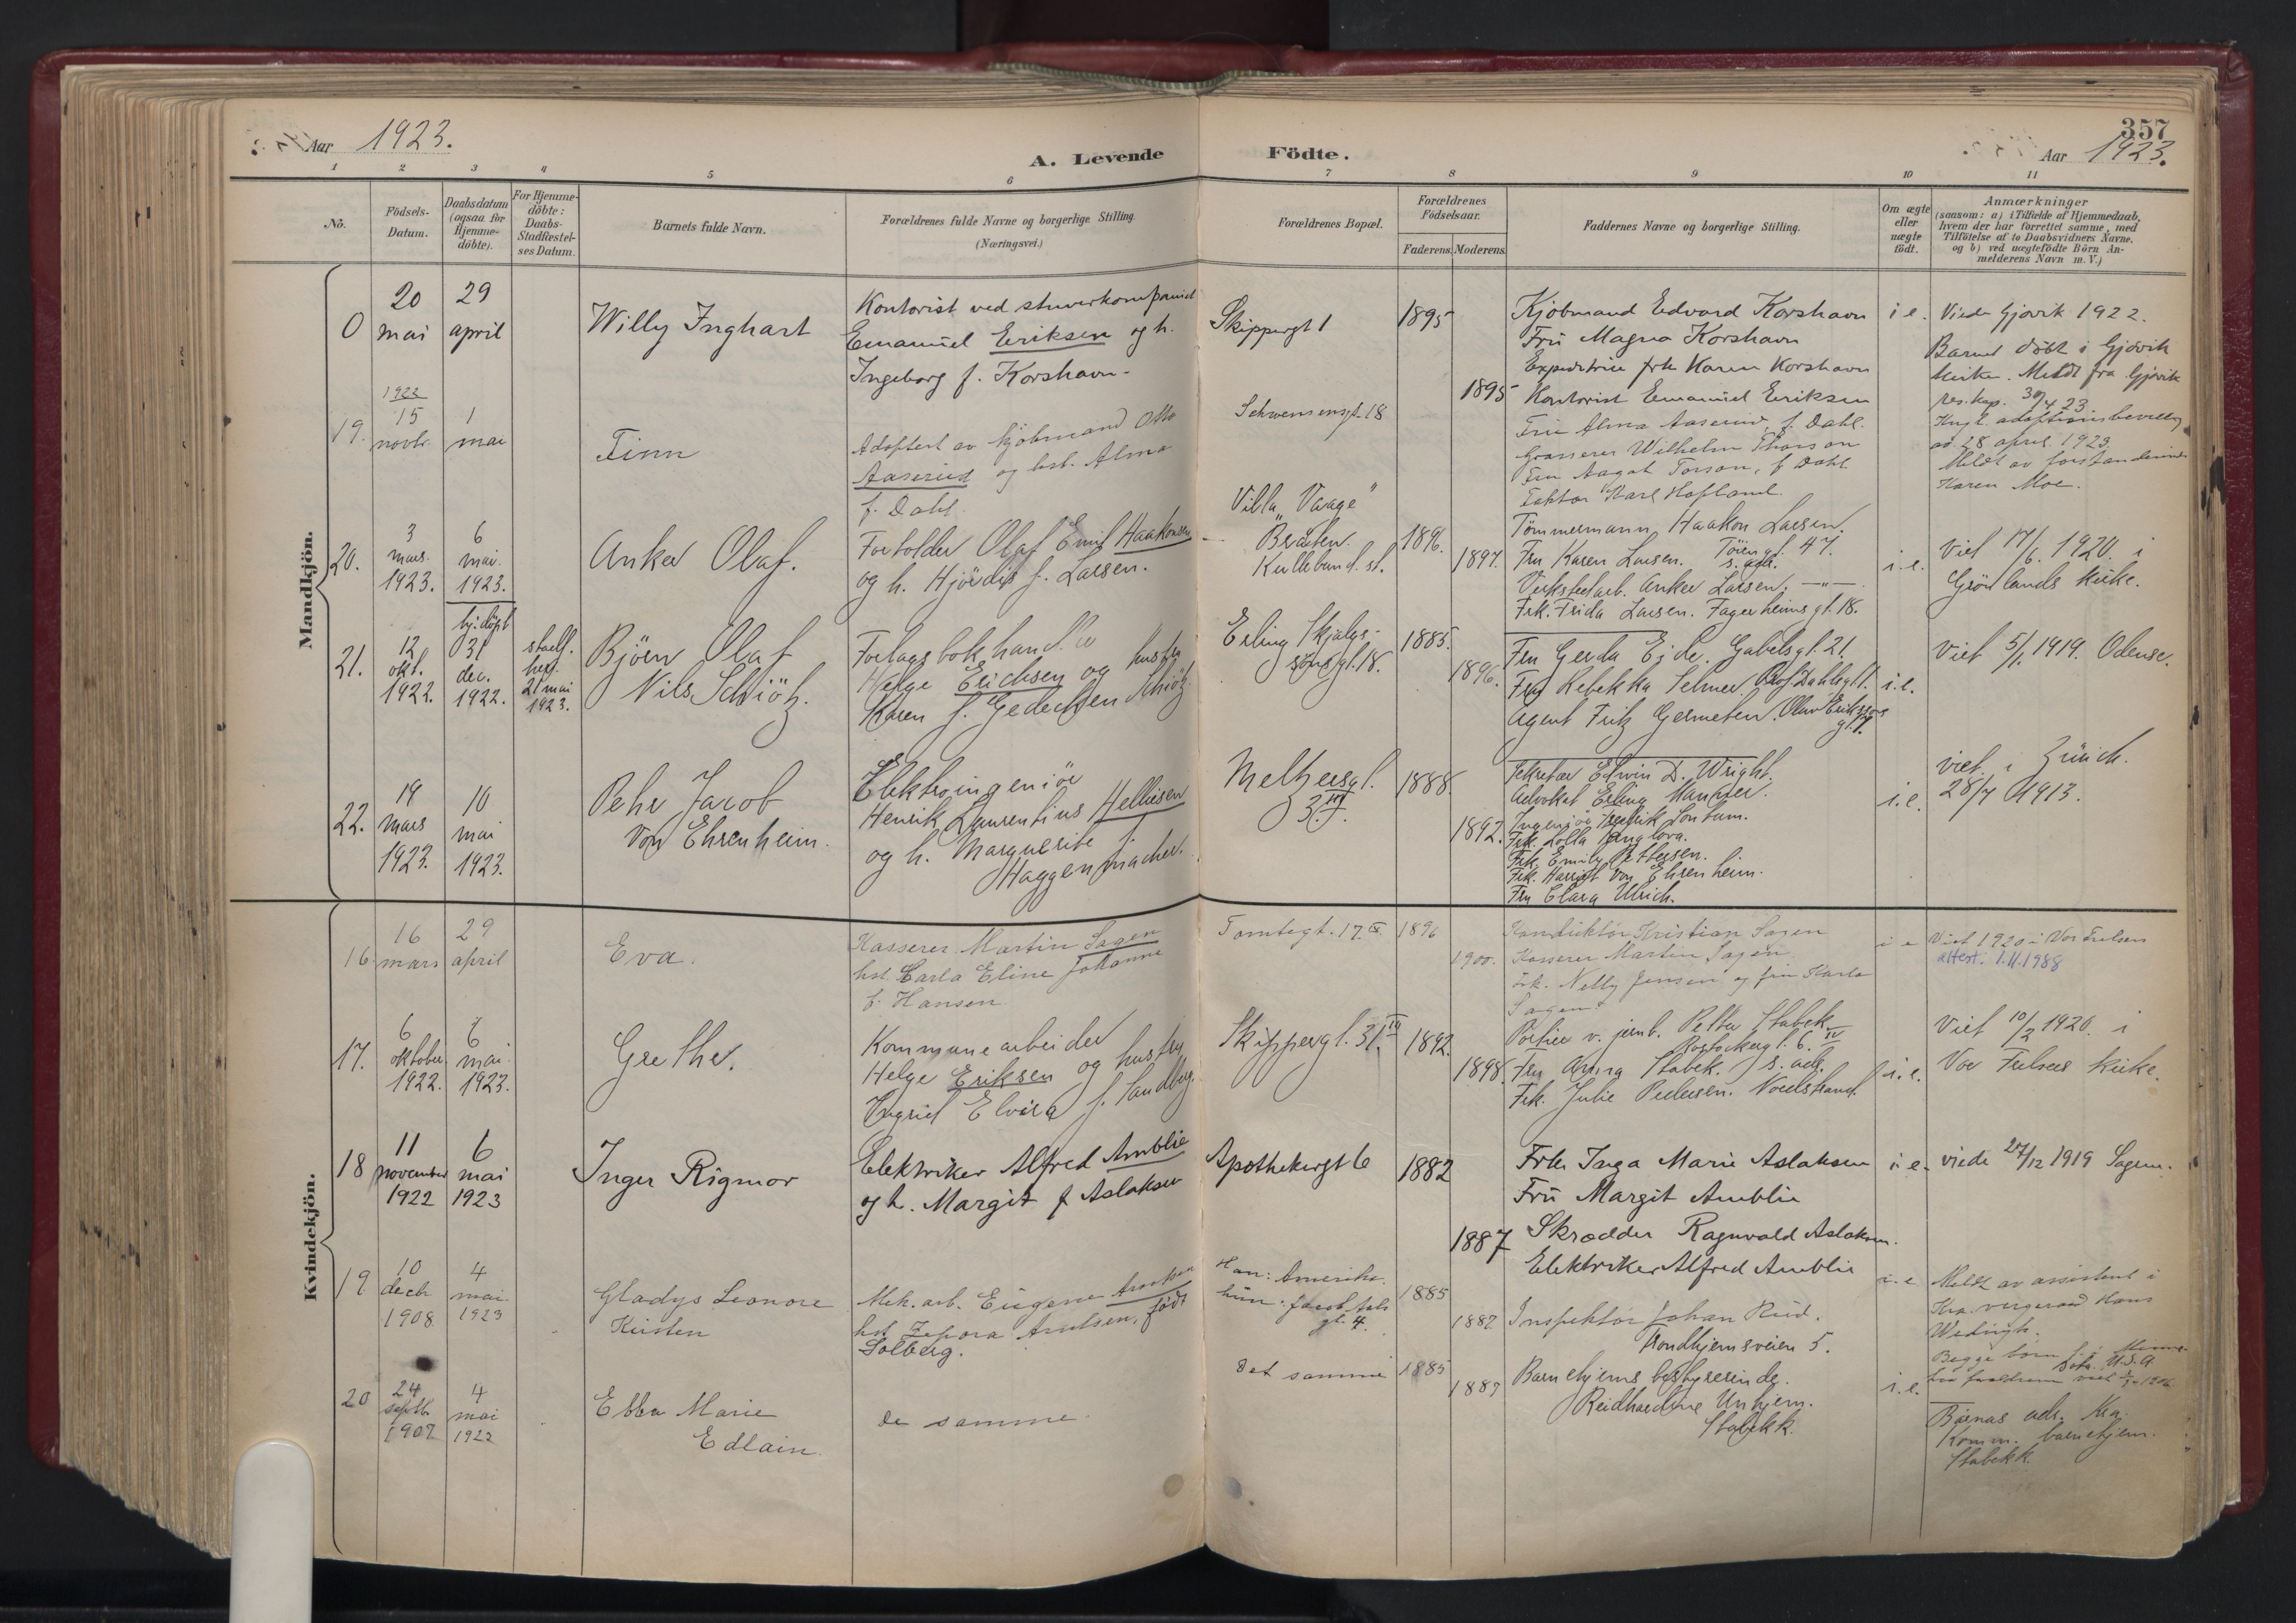 Aar 1923.
A. Levende Födte.
357
Aar 1923.
1 2 3 4 5 6 7 8 9 10 11
No.
Födsels-
Datum.
Daabsdatum
(ogsaa for
Hjemme-
döbte).
For Hjemme-
döbte:
Daabs-
Stadfæstel-
ses Datum.
Barnets fulde Navn.
Forældrenes fulde Navne og borgerlige Stilling.
(Næringsvei.)
Forældrenes Bopæl.
Forældrenes
Födselsaar.
Faderens. Moderens.
Faddernes Navne og borgerlige Stilling.
Om ægte
eller
uægte
födt.
Anmærkninger
(saasom: a) i Tilfælde af Hjemmedaab,
hvem der har forrettet samme, med
Tilföielse af to Daabsvidners Navne.
og b) ved uægtefödte Börn An-
melderens Navn m. V.)
Mandkjön.
0
20
mai
29
april
Willy Inghart
Kontorist ved
Emanuel Eriksen og h.
Ingeborg f. Korshavn.
Skippergt 1
1895
1895
Kjöbmand Edvard Korshavn
Fru Magna Korshavn
Expeditrice frk Karen Korshavn
Kontorist Emanuel Eriksen
i e.
Viede Gjövik 1922.
Barnet döbt i Gjövik
kirke. Meldt fra Gjövik
res. kap. 30/4 23
19.
1922
15
novbr.
1
mai
Finn
Adoptert av kjöbmand Otto
Aaserud og hst. Alma
f. Dahl.
Schwensensgt. 18
Fru Alma Aaserud, f. Dahl.
Grosserer Wilhelm Thorson
Fru Aagot Torson, f Dahl
Faktor Karl Hofland.
Kngl. adoptionsbevilling
av 28 april 1923.
Meldt av forstanderinde
Karen Moe.
20.
3
mars.
1923.
6
mai.
1923.
Anker Olaf.
Forvolder Olaf Emil Haakonsen
og h. Hjördis f. Larsen.
Villa "Varage"
Bråten.
Kullebund. st.
1896.
1897.
Tömmermann Haakon Larsen.
Töiengt. 47.
Fru Karen Larsen. s. adr.
Verkstedarb. Anker Larsen, —"—
Frk. Frida Larsen. Fagerheimsgt. 18.
i.e.
Viet 17/6 1920 i
Grönlands kirke.
21.
12
okt.
1922.
hj. döpt
31
dec.
1922.
stadf.
21 mai
1923.
Björn Olaf
Nils Schiötz.
Forlagsbokhandler
Helge Erichsen og hustru
Karen f. Gedechsen Schiötz
Erling Skjalgs-
sönsgt. 18.
1885.
1896.
Fru Gerda Ejde. Gabelsgt. 21.
Fru Rebekka Selmer.
Agent Fritz
i.e.
Viet 5/1 1919. Odense.
22.
19
mars
1923.
10
mai
1923.
Pehr Jacob
Von Ehrenheim.
Elektroingeniör
Henrik Laurentius Helliesen
og h. Marguerite f.
Haggenmacher.
Meltzersgt.
3 III.
1888.
1892.
Sekretær Edwin D. Wright.
Advokat Erling
Ingeniör Fredrik Sontum.
Frk. Lolla
Frk. Emily Pettersen.
Frk. Harriet Von Ehrenheim.
Fru Clara Ulrich.
i.e.
viet i Zürich.
28/7 1913.
Kvindekjön.
16.
16
mars
29
april
Eva.
Kasserer Martin Sagen
hst Carla Eline Johanne
f. Hansen.
Tomtegt. 17. IV
1896
1900.
Konduktör Kristian Sagen
Kasserer Martin Sagen
Frk. Nelly Jensen og fru Karla
Sagen
i e
Viet 1920 i Vor Frelsers
attest. 1.11.1988
17.
6
oktober
1922.
6
mai.
1923.
Grethe.
Kommunearbeider
Helge Eriksen og hustru
Ingrid Elvira f. Sandberg.
Skippergt. 31. III
1892.
1898.
Portier v. jernb. Petter Stabek
Rostockergt. 6. IV
Fru Anna Stabek. s. adr.
Frk. Julie Pedersen. Nordstrand.
i.e.
Viet 10/2 1920. i
Vor Frelsers kirke.
18
11
november
1922
6
mai
1923
Inger Rigmor
Elektriker Alfred Amblie
og h. Margit f Aslaksen
Apothekergt 6
1882
1887
Frk Inga Marie Aslaksen
Fru Margit Amblie
Skrædder Ragnvald Aslaksen.
Elektriker Alfred Amblie
i e.
viede 27/12 1919 Sagene.
19
10
decb.
1908.
4
mai
1923
Gladys Leonore
Kirsten
Mek. arb. Eugene Arntsen
hst Zepora Arntsen, född
Solberg.
Han: Amerika.
hun: Jacob Aals
gt. 4.
1885
1887
Inspektör Johan Rud.
Trondhjemsveien 5.
i. e
Meldt av assistent i
Kra. vergeraad Hans
Wedingh.
Begge born f. i Minne-
sota. U.S.A
20
24
septb.
1907
4
mai
1923
Ebba Marie
Edlain.
de samme.
Det samme
1885
1887
Barnehjems bestyrerinde.
Reidhardine Unhjem.
Stabekk.
i.e.
Barnas adr. Kra.
Komm. barnehjem.
Stabekk.